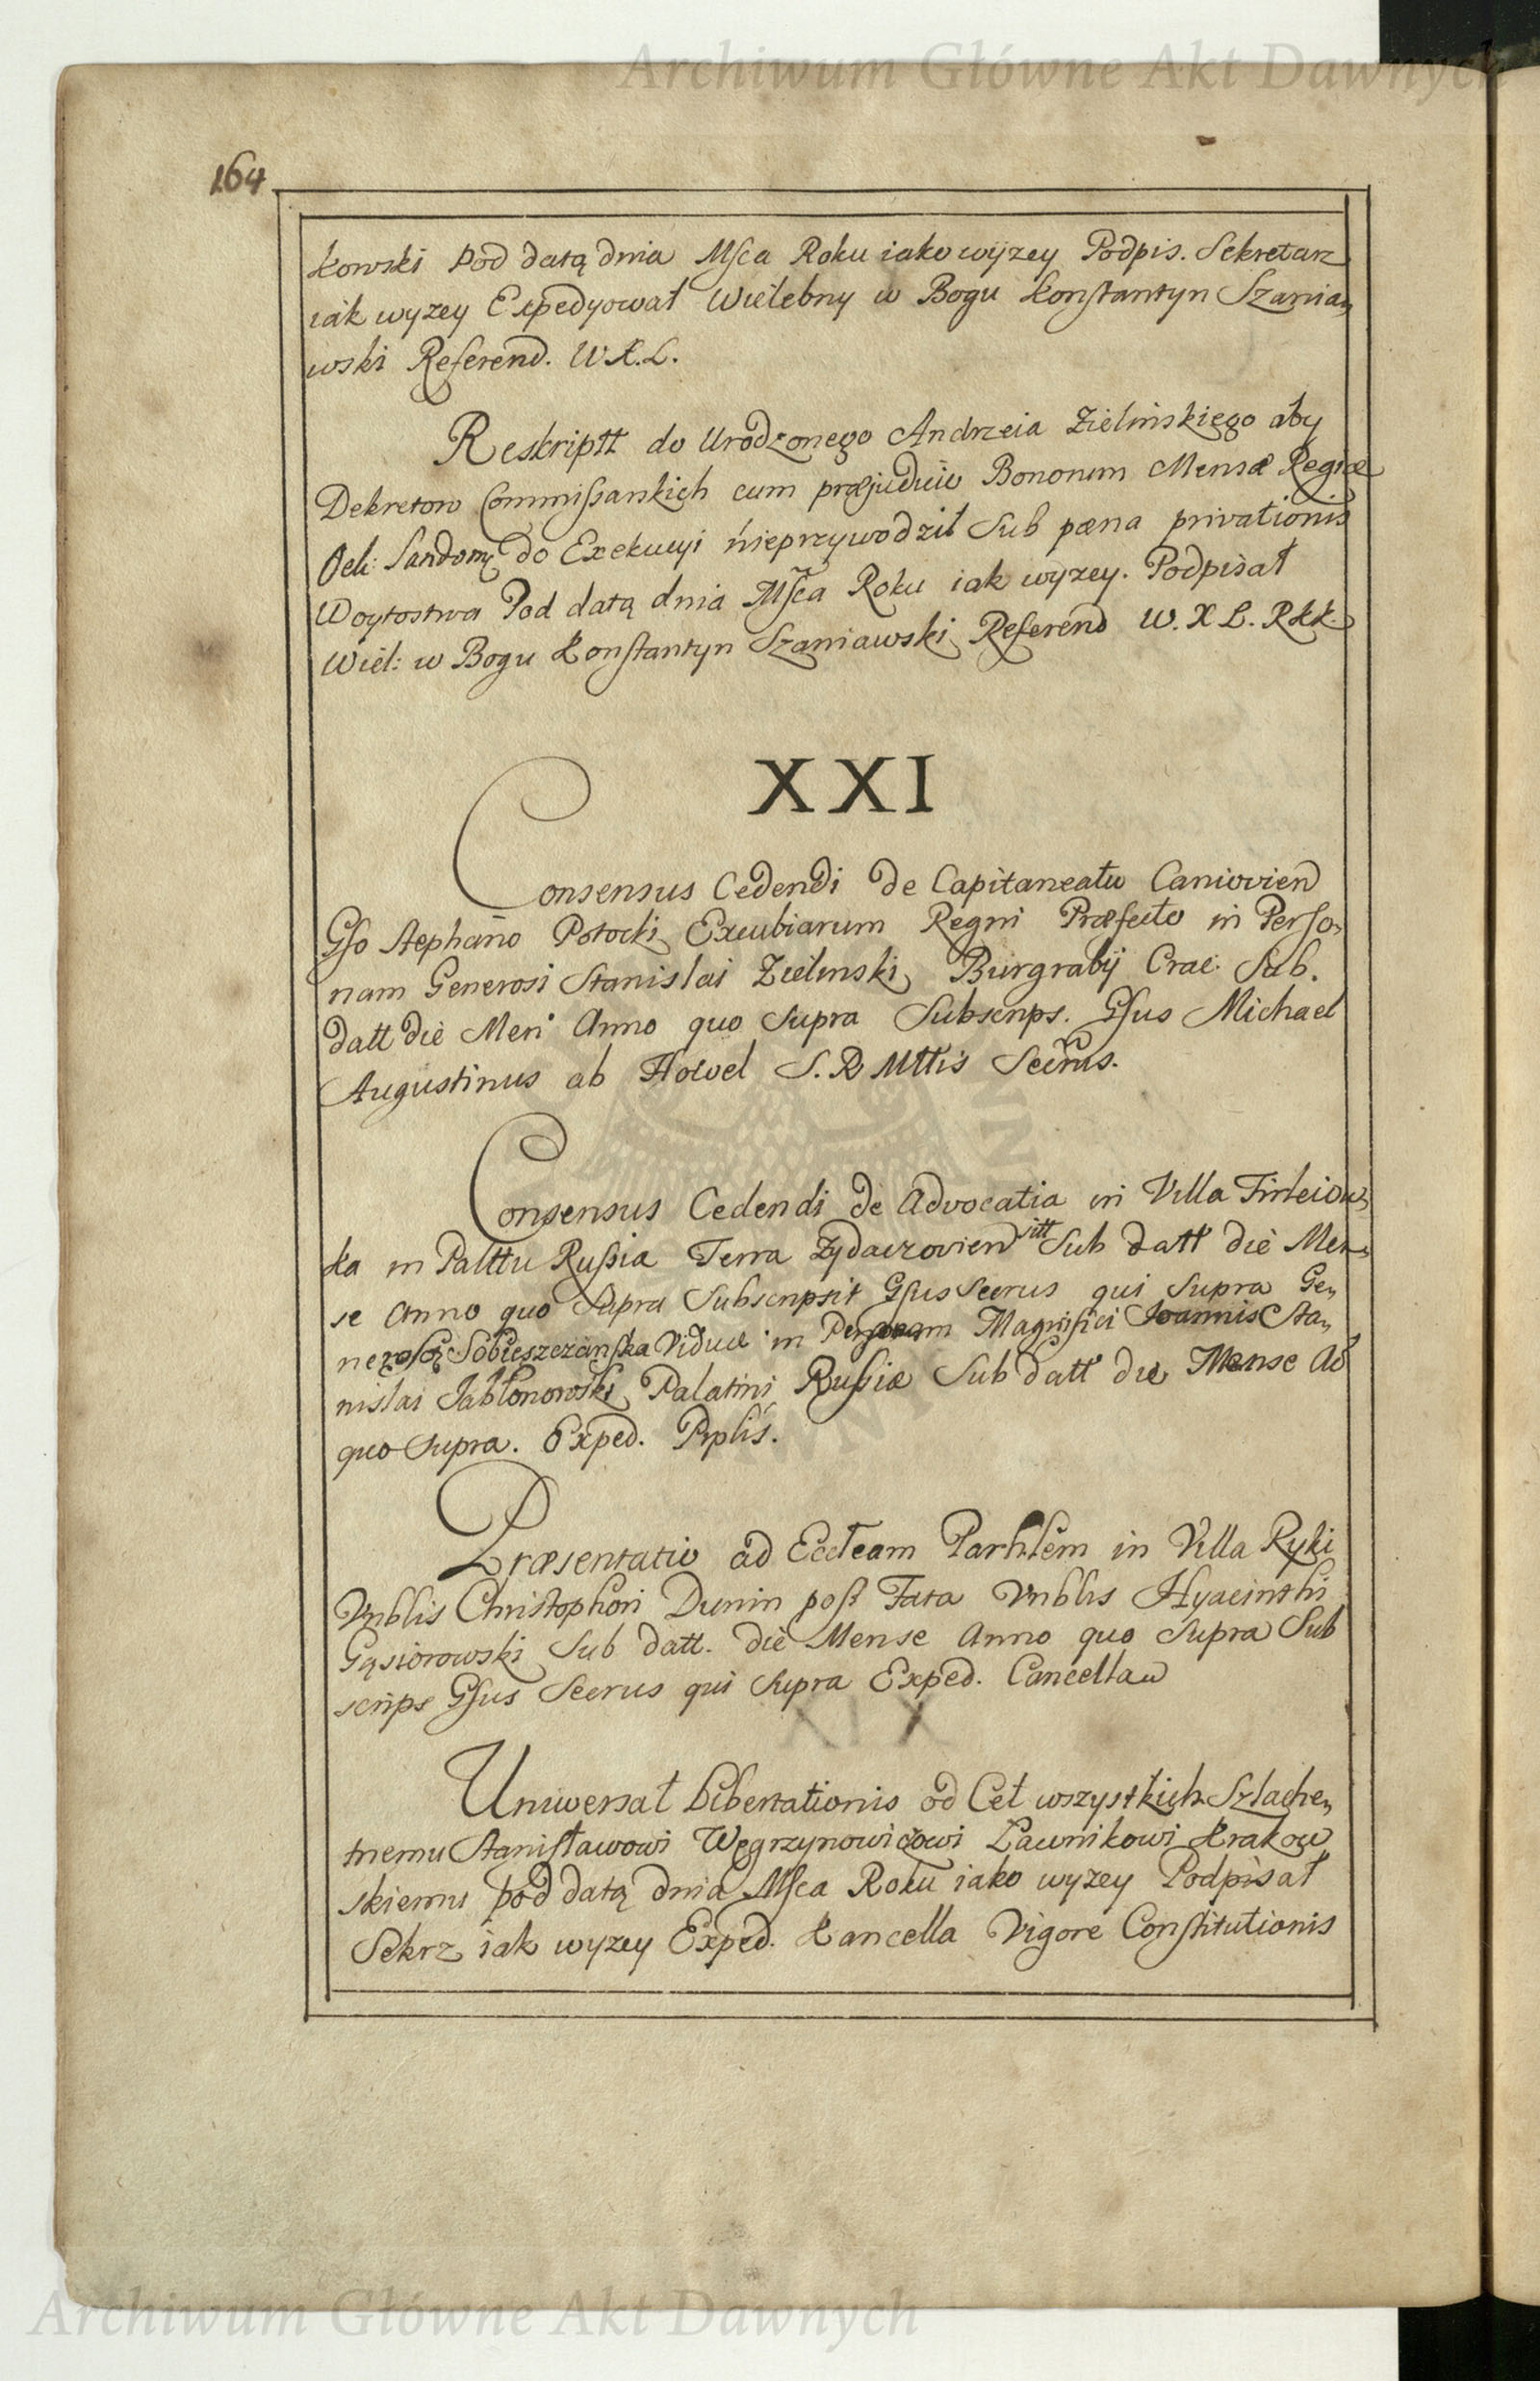 Archiwum Główne Akt Dawnych
164
kowski pod datą dnia Msca Roku iako wyzey Podpis. Sekretarz
iak wyzey Expedyował Wielebny w Bogu Konstantyn Szania„
wski Referend. W.X.L.
Reskriptt do Urodzonego Andrzeia Zielinskiego aby
Dekretow Commissarskich cum præjudicio Bonorum Mensæ Regiæ
Oeli: Sandom: do Exekucyi nieprzywodził Sub pæna privationis
Woytostwa Pod datą dnia Msca Roku iak wyzey. Podpisał
Wiel: w Bogu Konstantyn Szaniawski Referend W.X.L. Rkk.
XXI
Consensus Cedendi de Capitaneatu Caniovien
Gso Stephano Potocki Excubiarum Regni Præfecto in Perso„
nam Generosi Stanislai Zielinski Burgrabij Crac. Sub.
datt die Men Anno quo Supra Subscrips. Gsus Michael
Augustinus ab Howel S. R Mttis Secrus.
Consensus Cedendi de Advocatia in Villa Firleiow„
ka in Palttu Russia Terra Zydaczovien sitt Sub datt die Men„
se Anno quo Supra Subscripsit Gsus Secrus qui Supra Ge„
nerosæ Sobieszczanska Viduæ in Personam Magnifici Joannis Sta„
nislai Jabłonowski Palatini Russiæ Sub datt die Mense Ao
quo Supra. Exped. Pplis.
Præsentatio ad Eccleam Parhlem in Villa Ryki
Vnblis Christophori Dunin post Fata Vnblis Hyacinthi
Gąsiorowski Sub datt. die Mense Anno quo Supra Sub
scrips Gsus Secrus qui Supra Exped. Cancellaw
Uniwersał Libertationis od Ceł wszystkich Szlache„
tnemu Stanisławowi Węgrzynowiczowi Ławnikowi Krakow„
skiemu pod datą dnia Msca Roku iako wyzey Podpisał
Sekrz iak wyzey Exped. Kancella Vigore Constitutionis
Archiwum Główne Akt Dawnych